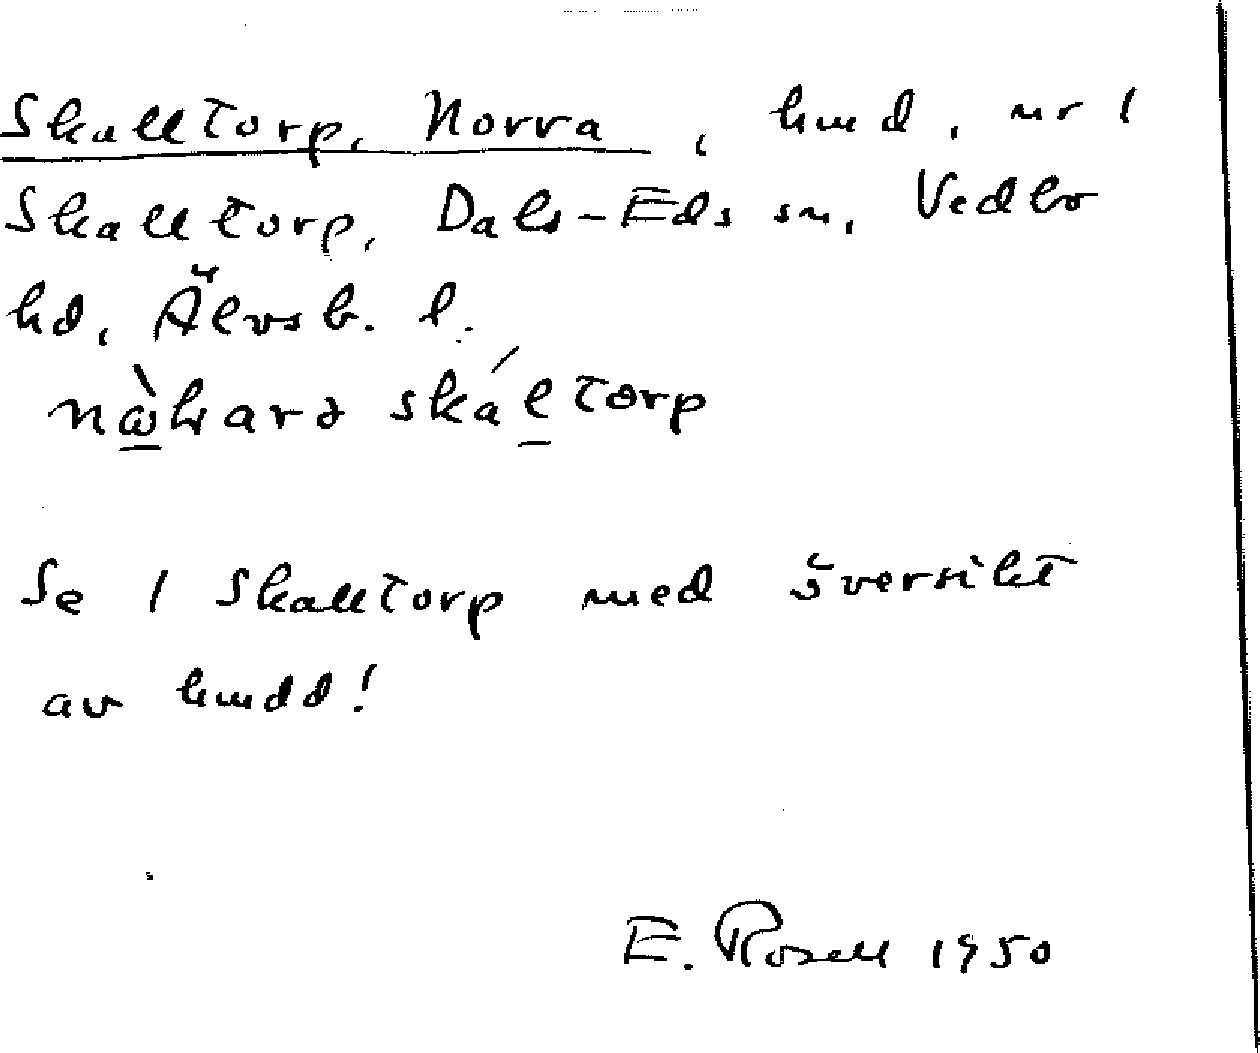 Skalltorp, Norra, hmd, nr 1
Skalltorp, Dals-Eds sn, Vedbo
hd, Älvsb. l.
skáltorp
Se 1 Skalltorp med översikt
av hmdd!
E. Rosell 1950